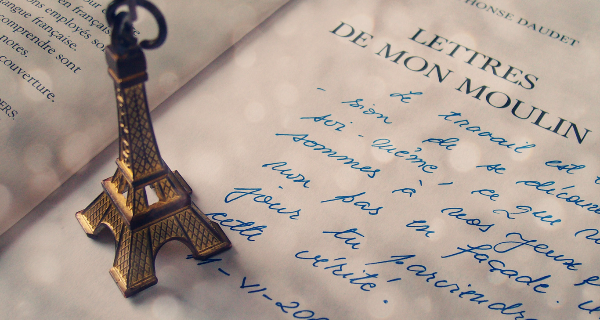 en français
ons employés so
angue française.
comprendre sont
notes.
couverture.
ERS.
HONSE DAUDET
LETTRES
DE MON MOULIN
Le travail est
- sion de se décou
soi-même, ce que
sommes à nos yeux
pas en façade.
jour tu parviendra
cette vérité.
- VI - 200